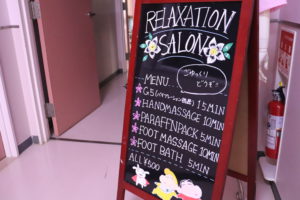 RELAXATION
SALON
ごゆっくり
どうぞ
MENU
G5 15MIN
HANDMASSAGE 10MIN
PARAFFINPACK 5MIN
FOOT MASSAGE 10MIN
FOOT BATH 5MIN
ALL ¥500